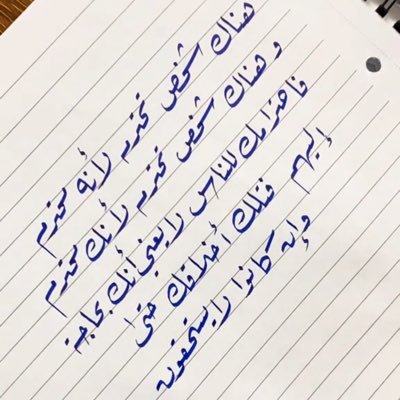 هناك شخص تحترمه لأنه محترم
وهناك شخص تحترمه لأنك محترم
فاحترامك للناس لا يعني أنك بحاجة
إليهم فتلك أخلاقك حتى
وإن كانوا لا يستحقون